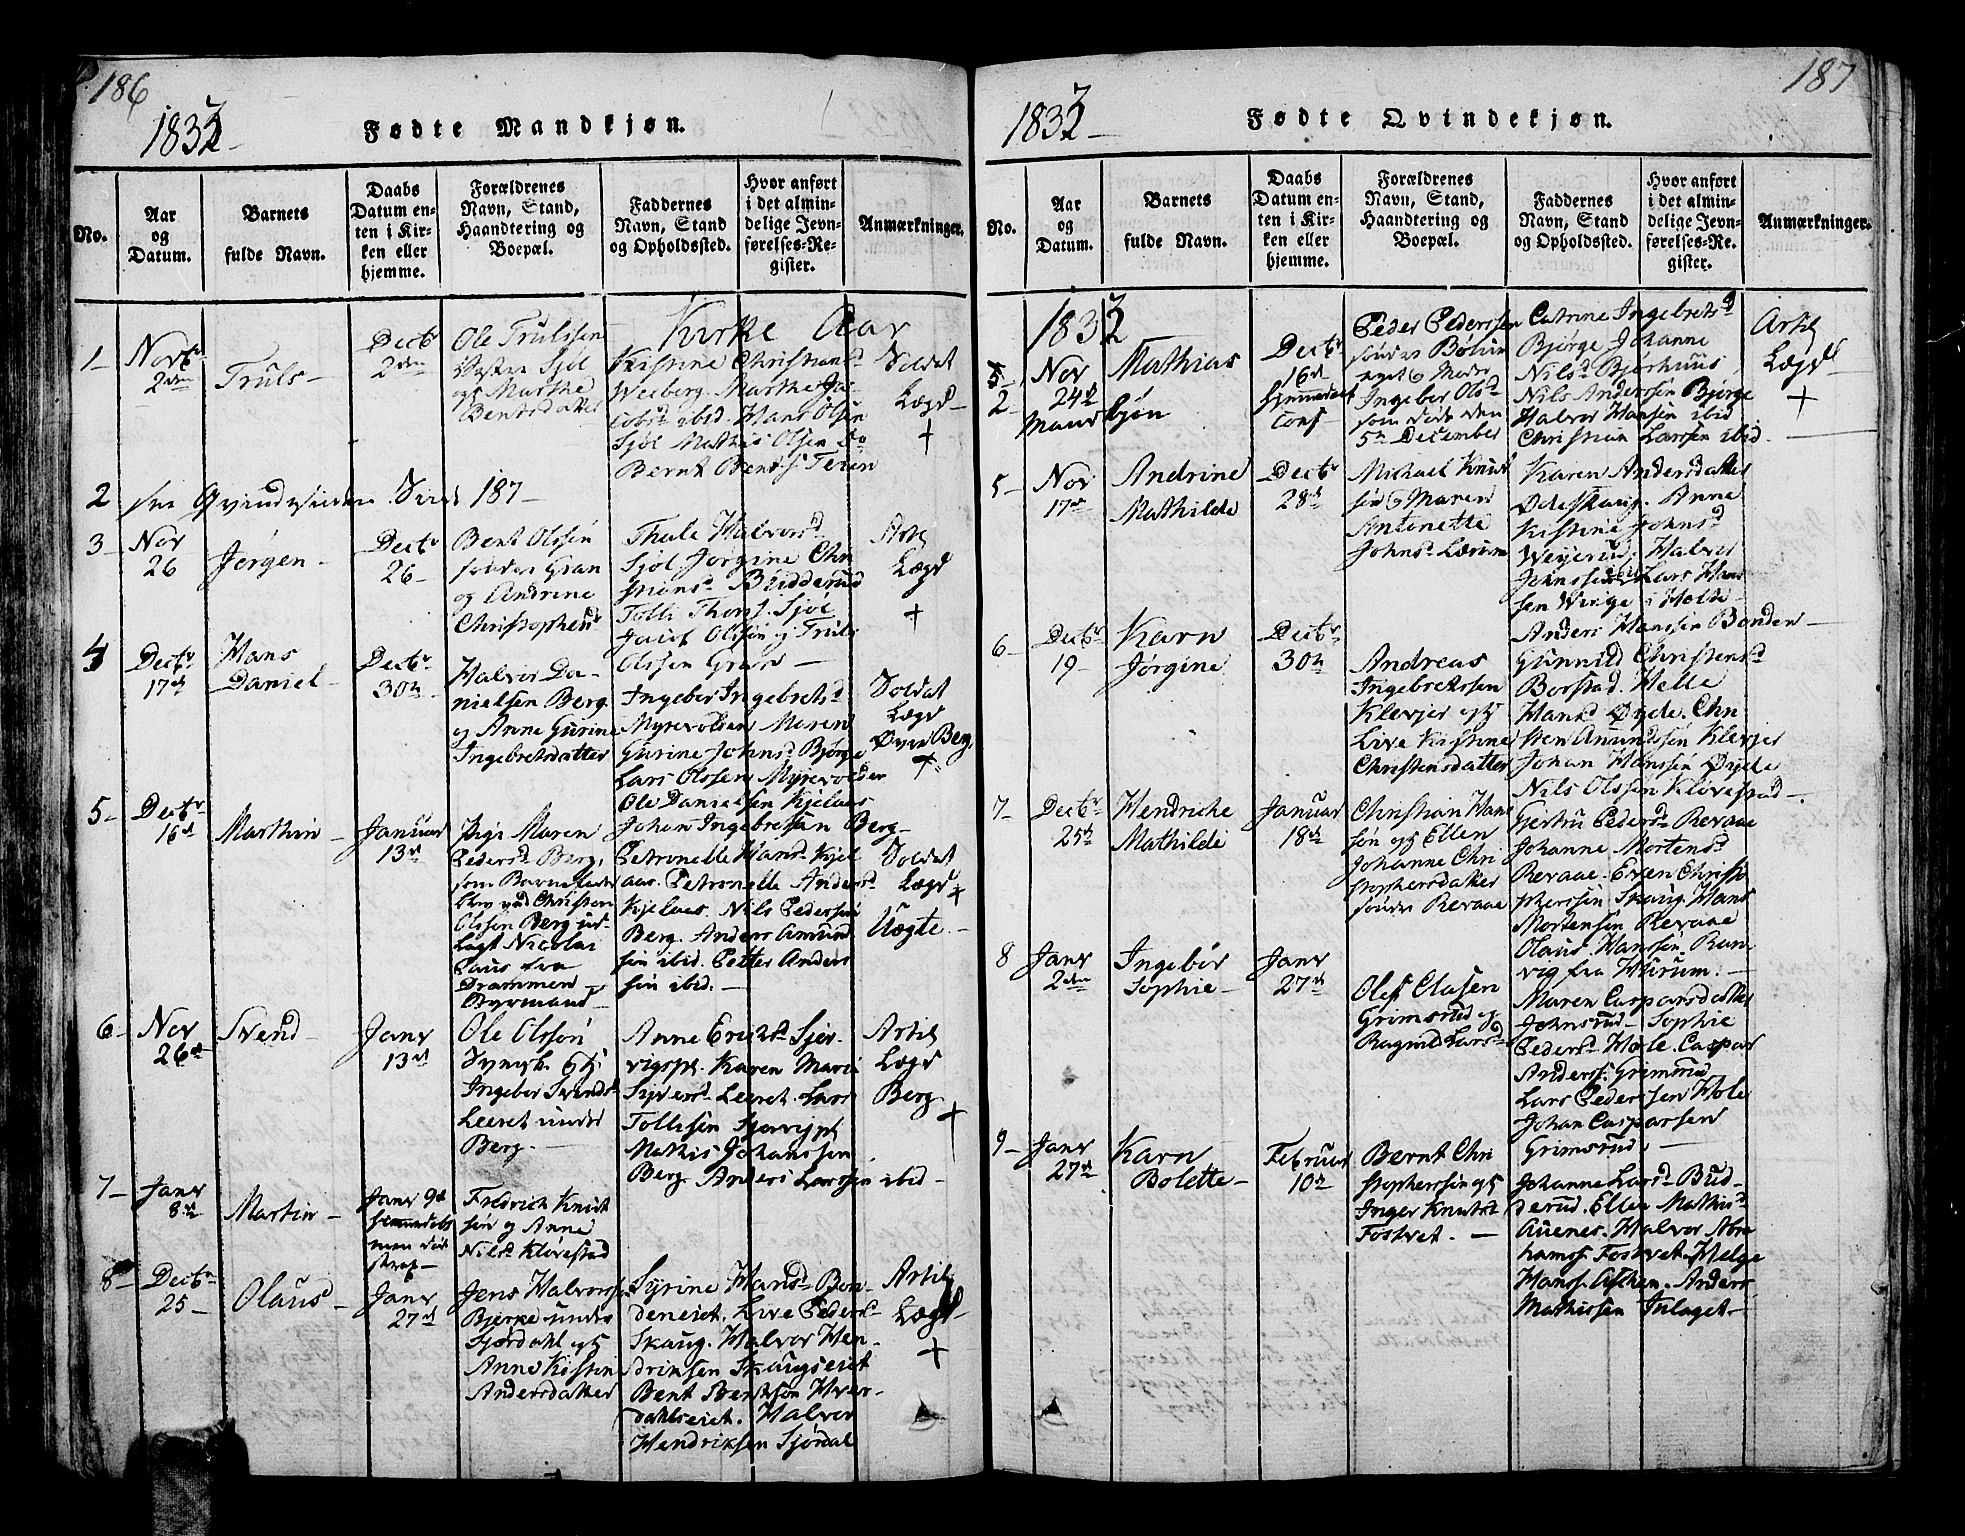 186
1833
Fødte Mandkjøn.
No.
Aar
og
Datum.
Barnets
fulde Navn.
Daabs
Datum en-
ten i Kir-
ken eller
hjemme.
Forældrenes
Navn, Stand,
Haandtering og
Boepæl.
Faddernes
Navn, Stand
og Opholdssted.
Hvor anført
i det almin-
delige Jevn-
førelses-Re-
gister.
Anmærkninger.
Kirke Aar
1
Novbr
2den
Truls
Decbr
2den
Ole Trulssen
Sjøl
og Marthe
Bentsdatter
Kistine Christians
Weeberg. Marthe Ja-
cobsd ibid. Hans Olsen
Sjøl Mathis Olsen
Bernt Bents.
Soldat
Lægd
+
2 see Qvindesiden Side 187
3
Nov
26
Jørgen
Decbr
26
Bent Olssøn
Gran
og Andrine
Christophersd
Thale Halvorsd
Sjøl Jørgine Chri
Bidderud
Tolle Thors. Sjøl
Jacob Olssøn og Truls
Olssen Gran
Artl
Lægd
+
4
Decbr
17d
Hans
Daniel
Decbr
30te
Halvor Da-
nielsen Berg
og Anne Gurine
Ingebretsdatter
Ingeber Ingebretsd
Myrevolden Maren
Gurine Johnsd Bjørge
Lars Olssen Myrevolden
Ole Danielsen Kjelaas
Johan Ingebretsen Berg
Soldat
Lægd
Øvre Berg,
+
5
Decbr
16d
Marthin
Januar
13d
Pige Maren
Pedersd Berg,
som Barnefader
blev ved Christian
Olssøn Berg ud-
lagt Nicolai
Paus fra
Drammen
Styrmand
Petronelle Hansd Kjel
aas. Petronelle Andersd
Kjelaas. Nils Pedersen
Berg. Anders Amund
søn ibid. Petter Anders
søn ibid.
Soldat
Lægd
+
Uægte.
6
Nov
26d
Svend
Janr
13d
Ole Olssøn
Ingeber Svends
Leeret under
Berg
Anne Erichsd Sjer-
vigspl. Karen Mari
Syversd Leeret. Lars
Tollesen Sjervigpl
Mathis Johanssen
Berg Anders Larssen ibid
Artil
Lægd
Berg
+
7
Janr
8d
Martin
Janr 9d
hjemmedøbt
men død
strax
Fredrich Knut
søn og Anne
Nilsd Kløvestad
8
Decbr
25
Olaus
Janr
27d
Jens Halvorss
Bjerke under
Sjørdahl og
Anne Kistin
Andersdatter
Syrine Hansd Bon-
deneiet. Live Pedersd
Skaug. Halvor Hen-
driksen Skaugseiet
Bent Bentsøn Hver-
dahlseiet. Halvor
Hendriksen Sjørdal
Artil
Lægd
+
187
1833
Fødte Qvindekjøn.
No.
Aar
og
Datum.
Barnets
fulde Navn.
Daabs
Datum en-
ten i Kir-
ken eller
hjemme.
Forældrenes
Navn, Stand,
Haandtering og
Boepæl.
Faddernes
Navn, Stand
og Opholdssted.
Hvor anført
i det almin-
delige Jevn-
førelses-Re-
gister.
Anmærkninger.
1833
2
Nov
24d
Mand kjøn
Mathias
Decbr
16d
Hjemmedøbt
Conf
Peder Pederssen
Ingeber Olsd
som døde den
5te December
Catrine Ingebretsd
Bjørge Johanne
Nilsd Bjørhuus
Nils Anderssen Bjørge
Halvor Hansen ibid
Christian Larssen ibid
Artl
Lægd
+
5
Nov
17d
Andrine
Mathilde
Decbr
28d
Michael Knut
søn og Maren
Antonette
Johnsd Lærum
Karen Andersdatter
Ødeskaug. Anne
Kistine Johnsd
Weyerud. Halvor
Johnssen Lars Hans
sen Wiige i Holte
Anders Hanssen Bonden
6
Decbr
19
Karn
Jørgine
Decbr
30te
Andreas
Ingebretssen
Klevjer og
Live Kistine
Christensdatter
Gunnild Christensd
Borstad. Helle
Hansd Øyde. Chri
sten Amundsen Klevjer
Johan Hanssen Øyde
Nils Olssen Kløvestad.
7
Decbr
25d
Hendriche
Mathilde
Januar
18d
Christian Hans
søn og Ellen
Johanne Chri
stophersdatter
sønder Revaae
Gjertru Pedersd Revaae
Johanne Mortensd
Revaae. Even Christo
pherssen Skaug. Hans
Mortensen Revaae
Olaus Hanssen Run
vig fra Hurum.
8
Janr
2den
Ingebør
Sophie
Janr
27d
Ole Olasen
Grimsrud og
Ragnild Larsd
Maren Caspersdatter
Johnsrud Sophie
Pedersd Hole. Casper
Anderss. Grimsrud
Lars Pederssen Hole
Johan Caspersen
Grimsrud
9
Janr
27d
Karn
Bolette
Februar
10d
Bernt Chri
stopherssøn og
Inger Knutsd
Fostvet.
Johanne Larsd Bud
derud. Ellen Mathisd
Auenes. Halvor Abra
hamss. Fostvet. Helge
Hanss. Aschen. Anders
Mathissen Inlaget